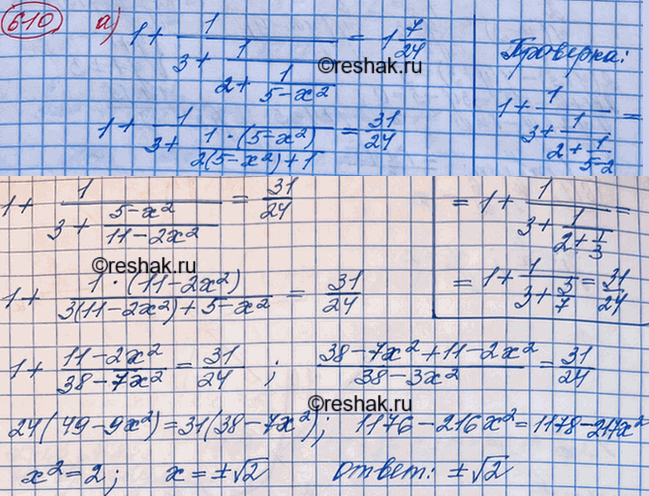 610 а) 1 + 1/(3 + 1/(2 + 1/(5 − x²))) = 1 7/24
©reshak.ru
Проверка:
1 + 1/(3 + (1·(5 − x²))/(2(5 − x²) + 1)) = 31/24
1 + 1/(3 + 1/(2 + 1/(5 − 2))) =
1 + 1/(3 + (5 − x²)/(11 − 2x²)) = 31/24
= 1 + 1/(3 + 1/(2 + 1/3)) =
©reshak.ru
1 + (1·(11 − 2x²))/(3(11 − 2x²) + 5 − x²) = 31/24
= 1 + 1/(3 + 3/7) = 31/24
1 + (11 − 2x²)/(38 − 7x²) = 31/24 ; (38 − 7x² + 11 − 2x²)/(38 − 3x²) = 31/24
©reshak.ru
24(49 − 9x²) = 31(38 − 7x²); 1176 − 216x² = 1178 − 217x²
x² = 2; x = ±√2 ответ: ±√2